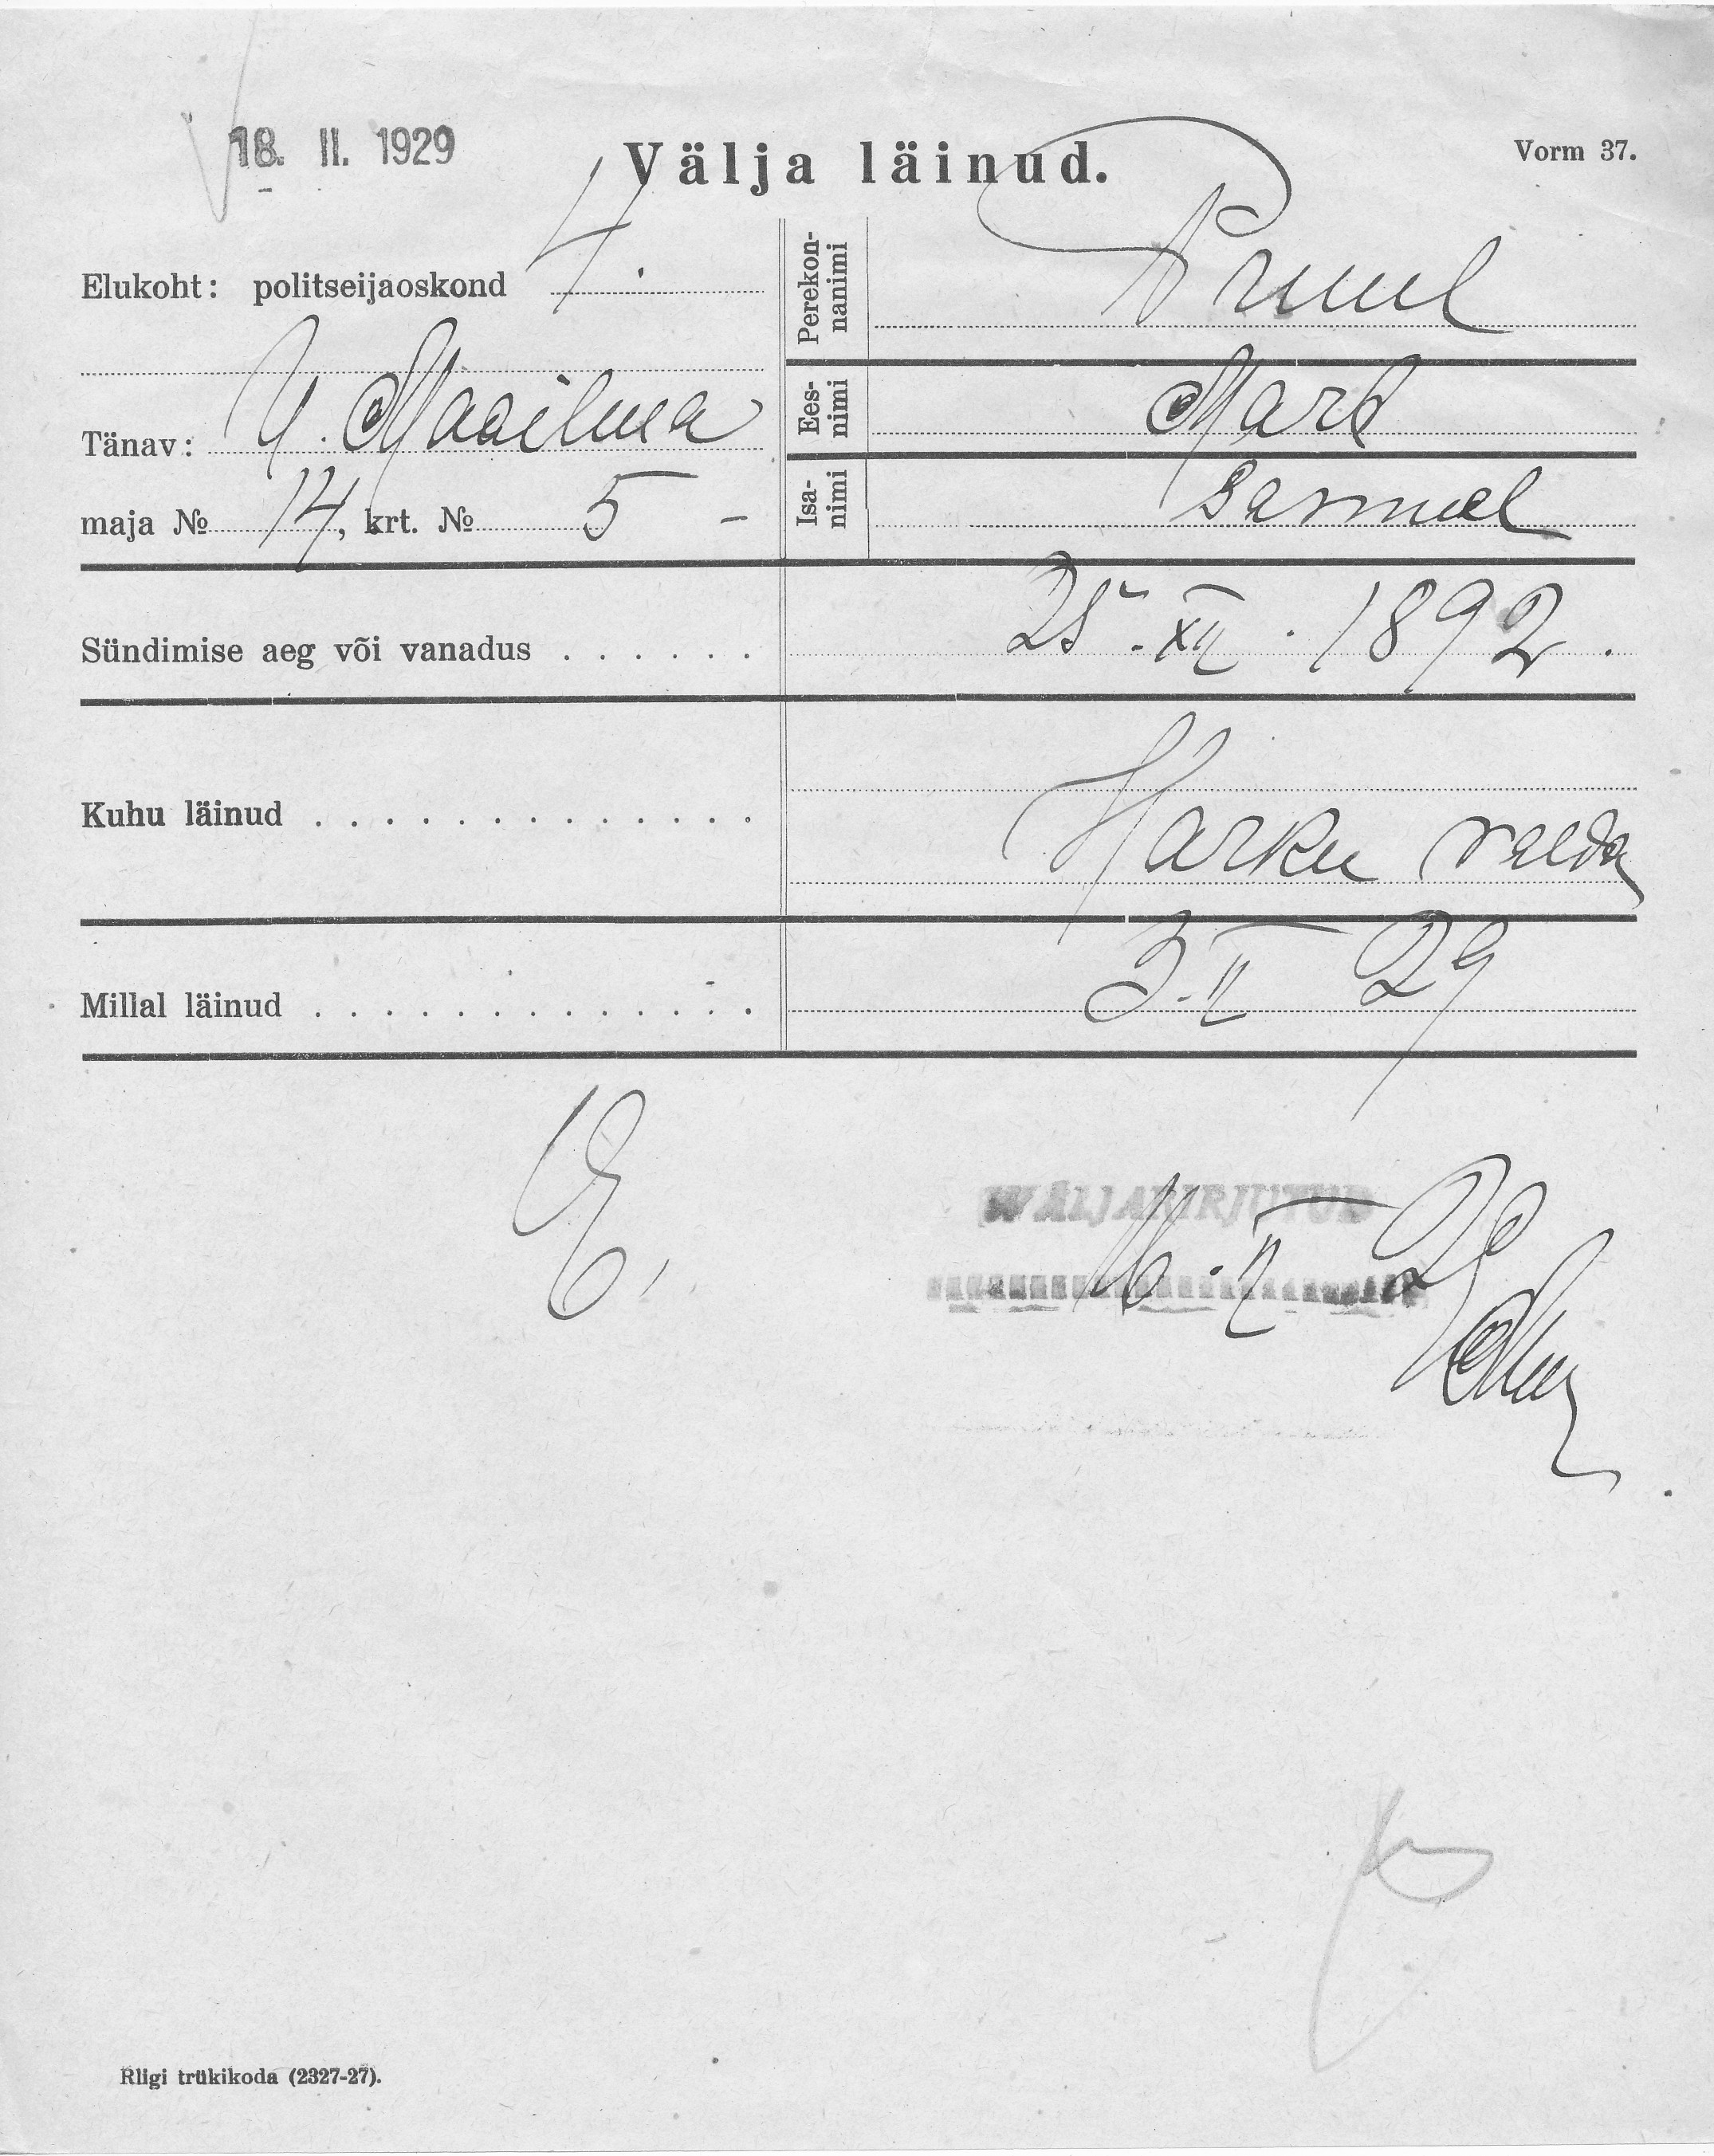 18. II. 1929
Välja läinud.
Vorm 37.
Elukoht: politseijaoskond 4.
Tänav: U. Maailma
maja № 14, krt. № 5 –
Perekonnanimi Pruul
Eesnimi Mart
Isanimi Samuel
Sündimise aeg või vanadus . . . . . . 25. XII. 1892.
Kuhu läinud . . . . . . . . . . . . . Harku valda
Millal läinud . . . . . . . . . . . . . 3. II 29
WÄLJAKIRJUTUD
16. II 29
Riigi trükikoda (2327-27).